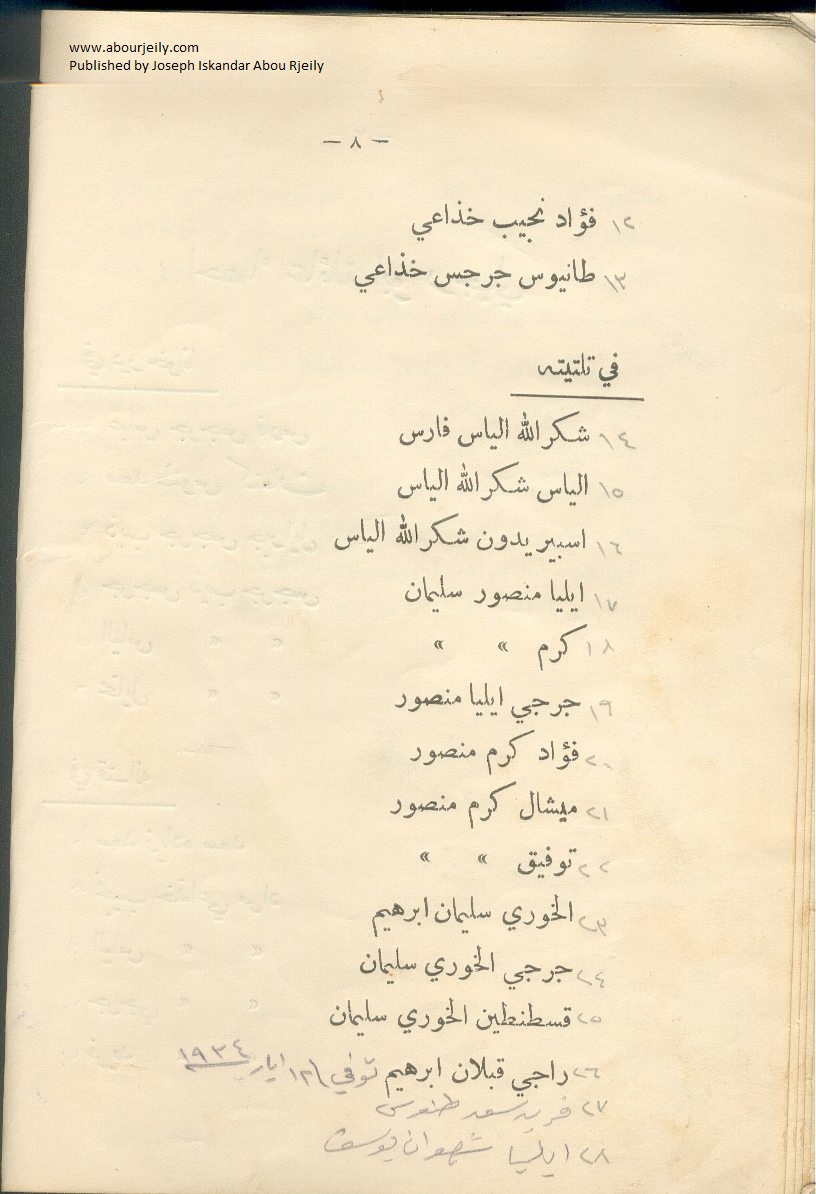 www.abourjeily.com
Published by Joseph Iskandar Abou Rjeily
— ٨ —
١٢ فؤاد نجيب خذاعي
١٣ طانيوس جرجس خذاعي
في تلتيته
١٤ شكرالله الياس فارس
١٥ الياس شكرالله الياس
١٦ اسبيريدون شكرالله الياس
١٧ ايليا منصور سليمان
١٨ كرم » »
١٩ جرجي ايليا منصور
٢٠ فؤاد كرم منصور
٢١ ميشال كرم منصور
٢٢ توفيق » »
٢٣ الخوري سليمان ابرهيم
٢٤ جرجي الخوري سليمان
٢٥ قسطنطين الخوري سليمان
٢٦ راجي قبلان ابرهيم توفي ١٢ ايار ١٩٣٤
٢٧ فريد سعد طنوس
٢٨ ايليا شهوان يوسف